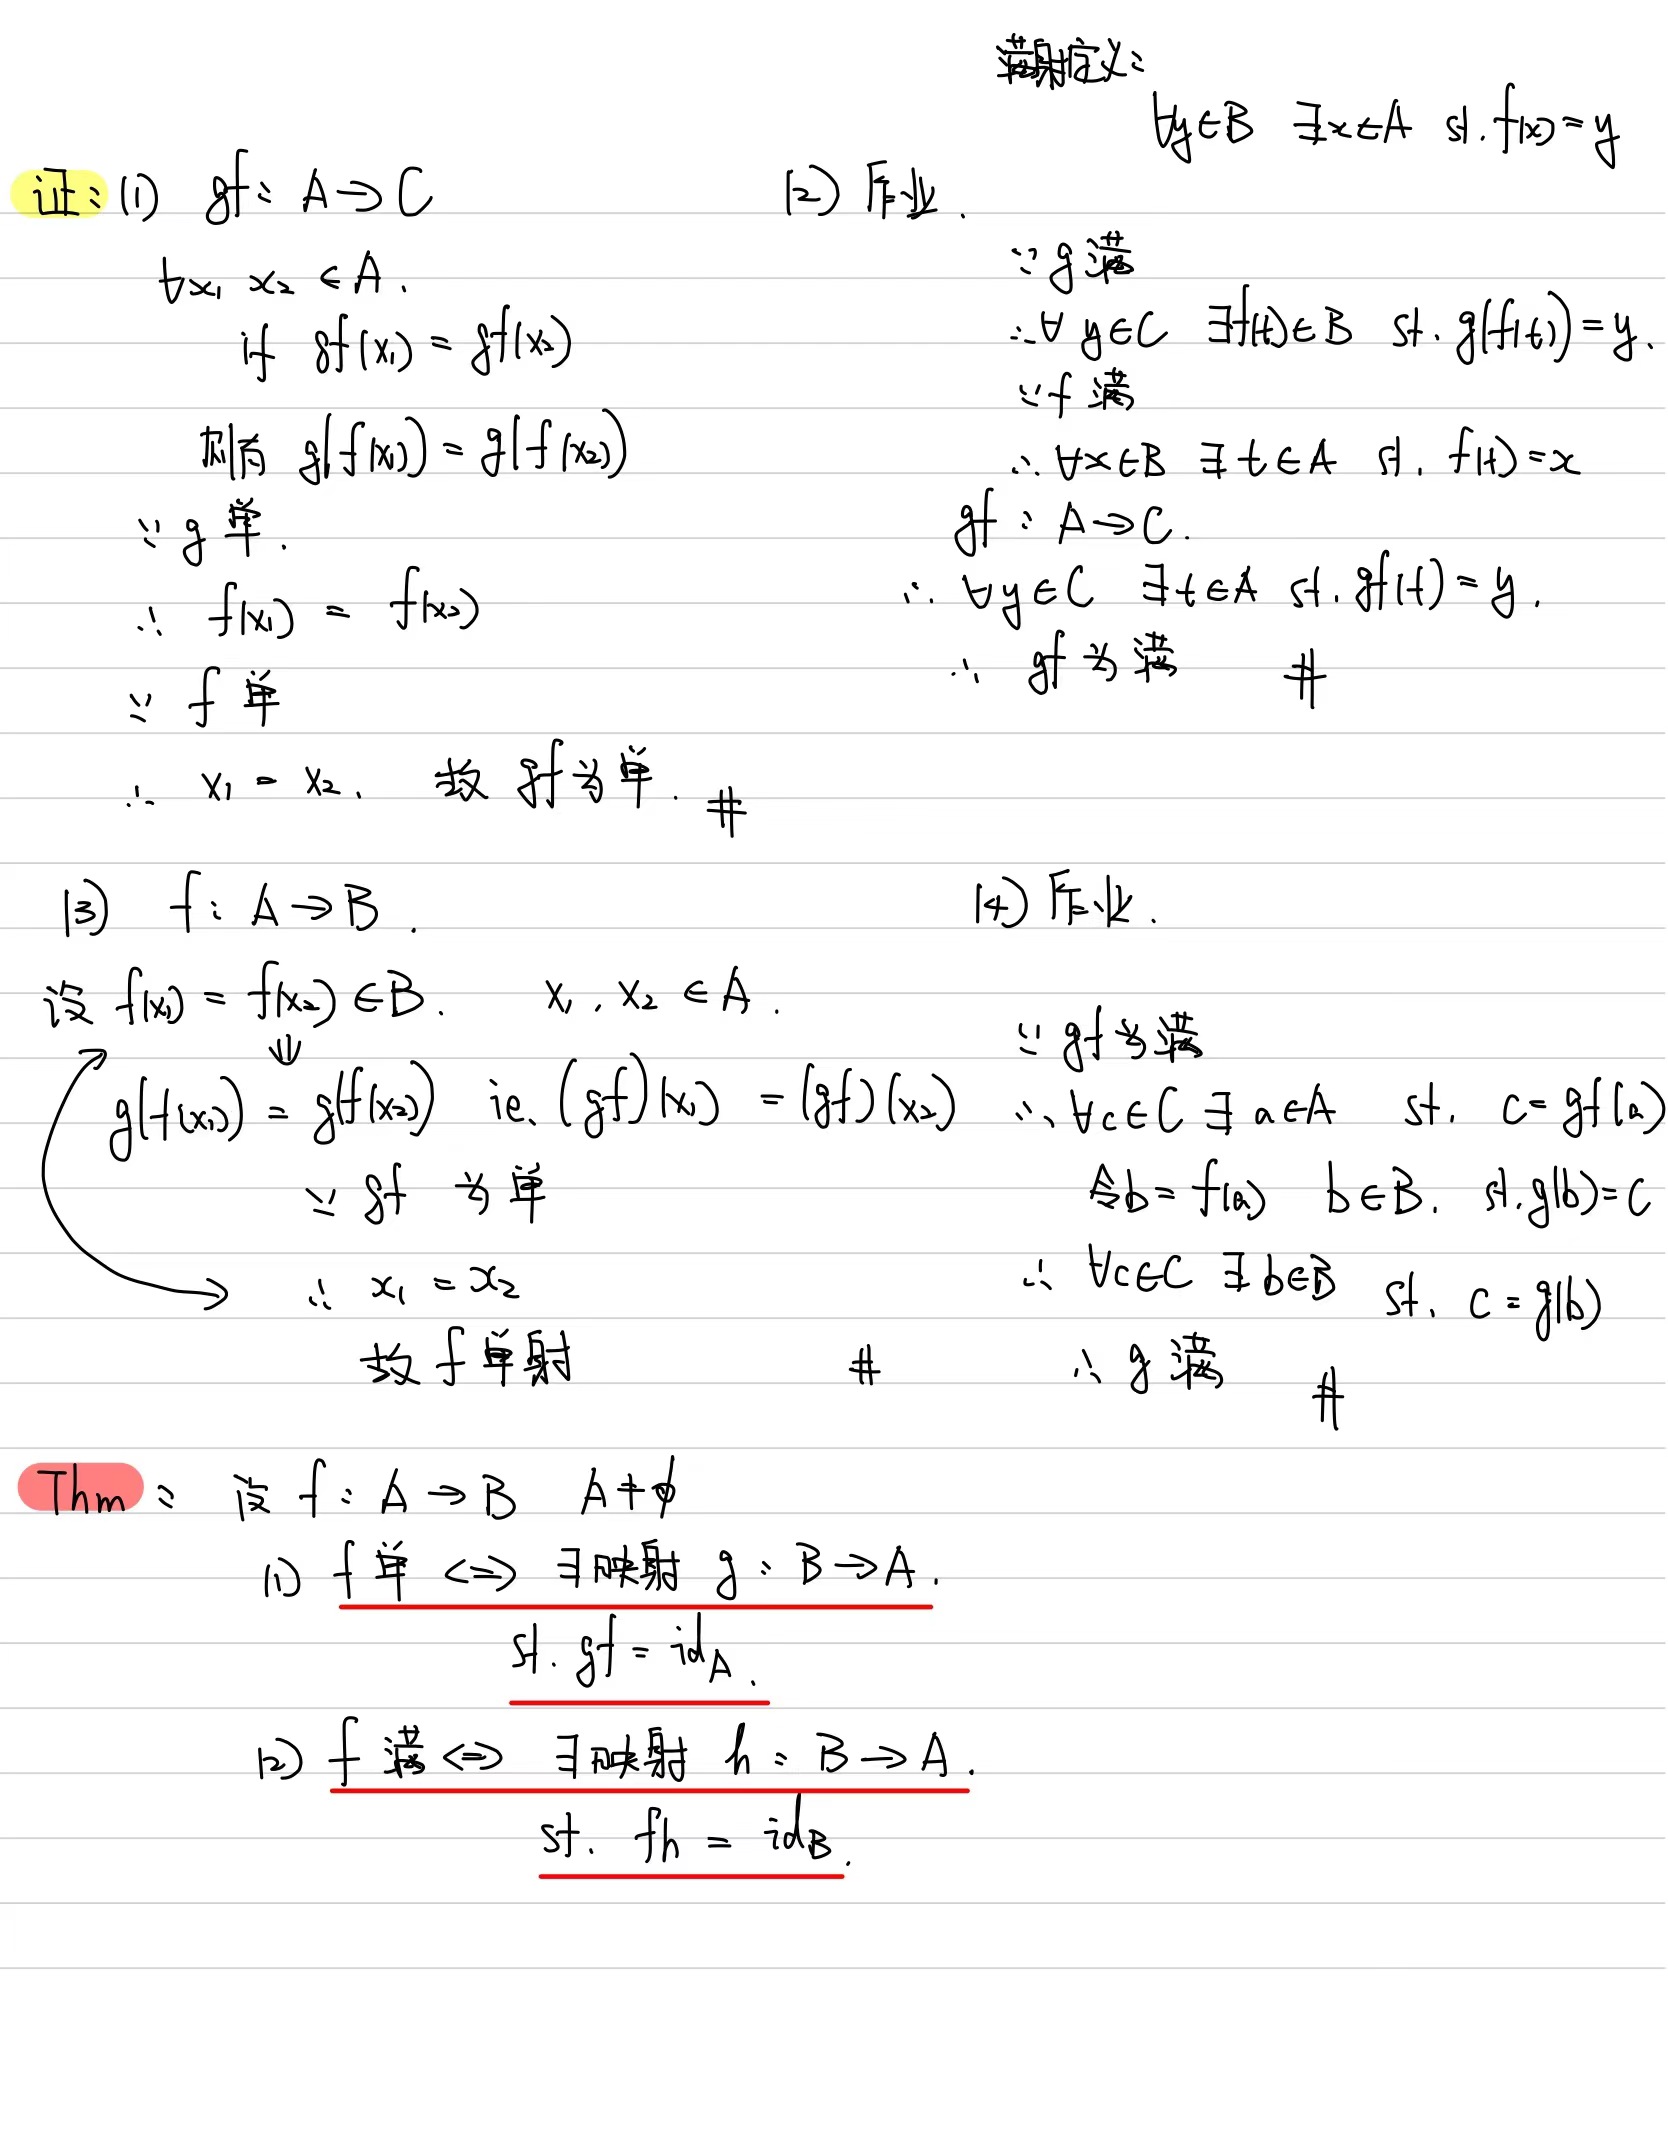 满射定义:
∀y∈B ∃x∈A st. f(x)=y
证: (1) gf: A→C
∀x₁ x₂ ∈A.
if gf(x₁) = gf(x₂)
则有 g(f(x₁)) = g(f(x₂))
∵ g 单.
∴ f(x₁) = f(x₂)
∵ f 单
∴ x₁ = x₂. 故 gf为单. #
(2) 作业.
∵ g 满
∴ ∀ y∈C ∃f(t)∈B st. g(f(t))=y.
∵ f 满
∴ ∀x∈B ∃ t∈A st. f(t)=x
gf : A→C.
∴ ∀y∈C ∃t∈A st. gf(t)=y.
∴ gf 为满 #
(3) f: A→B.
设 f(x₁) = f(x₂)∈B. x₁, x₂ ∈A.
⇓
g(f(x₁)) = g(f(x₂)) ie. (gf)(x₁) = (gf)(x₂)
∵ gf 为单
∴ x₁ = x₂
故 f 单射 #
(4) 作业.
∵ gf为满
∴ ∀c∈C ∃ a∈A st. c=gf(a)
令b=f(a) b∈B. st. g(b)=c
∴ ∀c∈C ∃ b∈B st. c=g(b)
∴ g 满 #
Thm: 设 f: A→B A≠∅
(1) f 单 <=> ∃映射 g: B→A.
st. gf = id_A.
(2) f 满 <=> ∃映射 h: B→A.
st. fh = id_B.